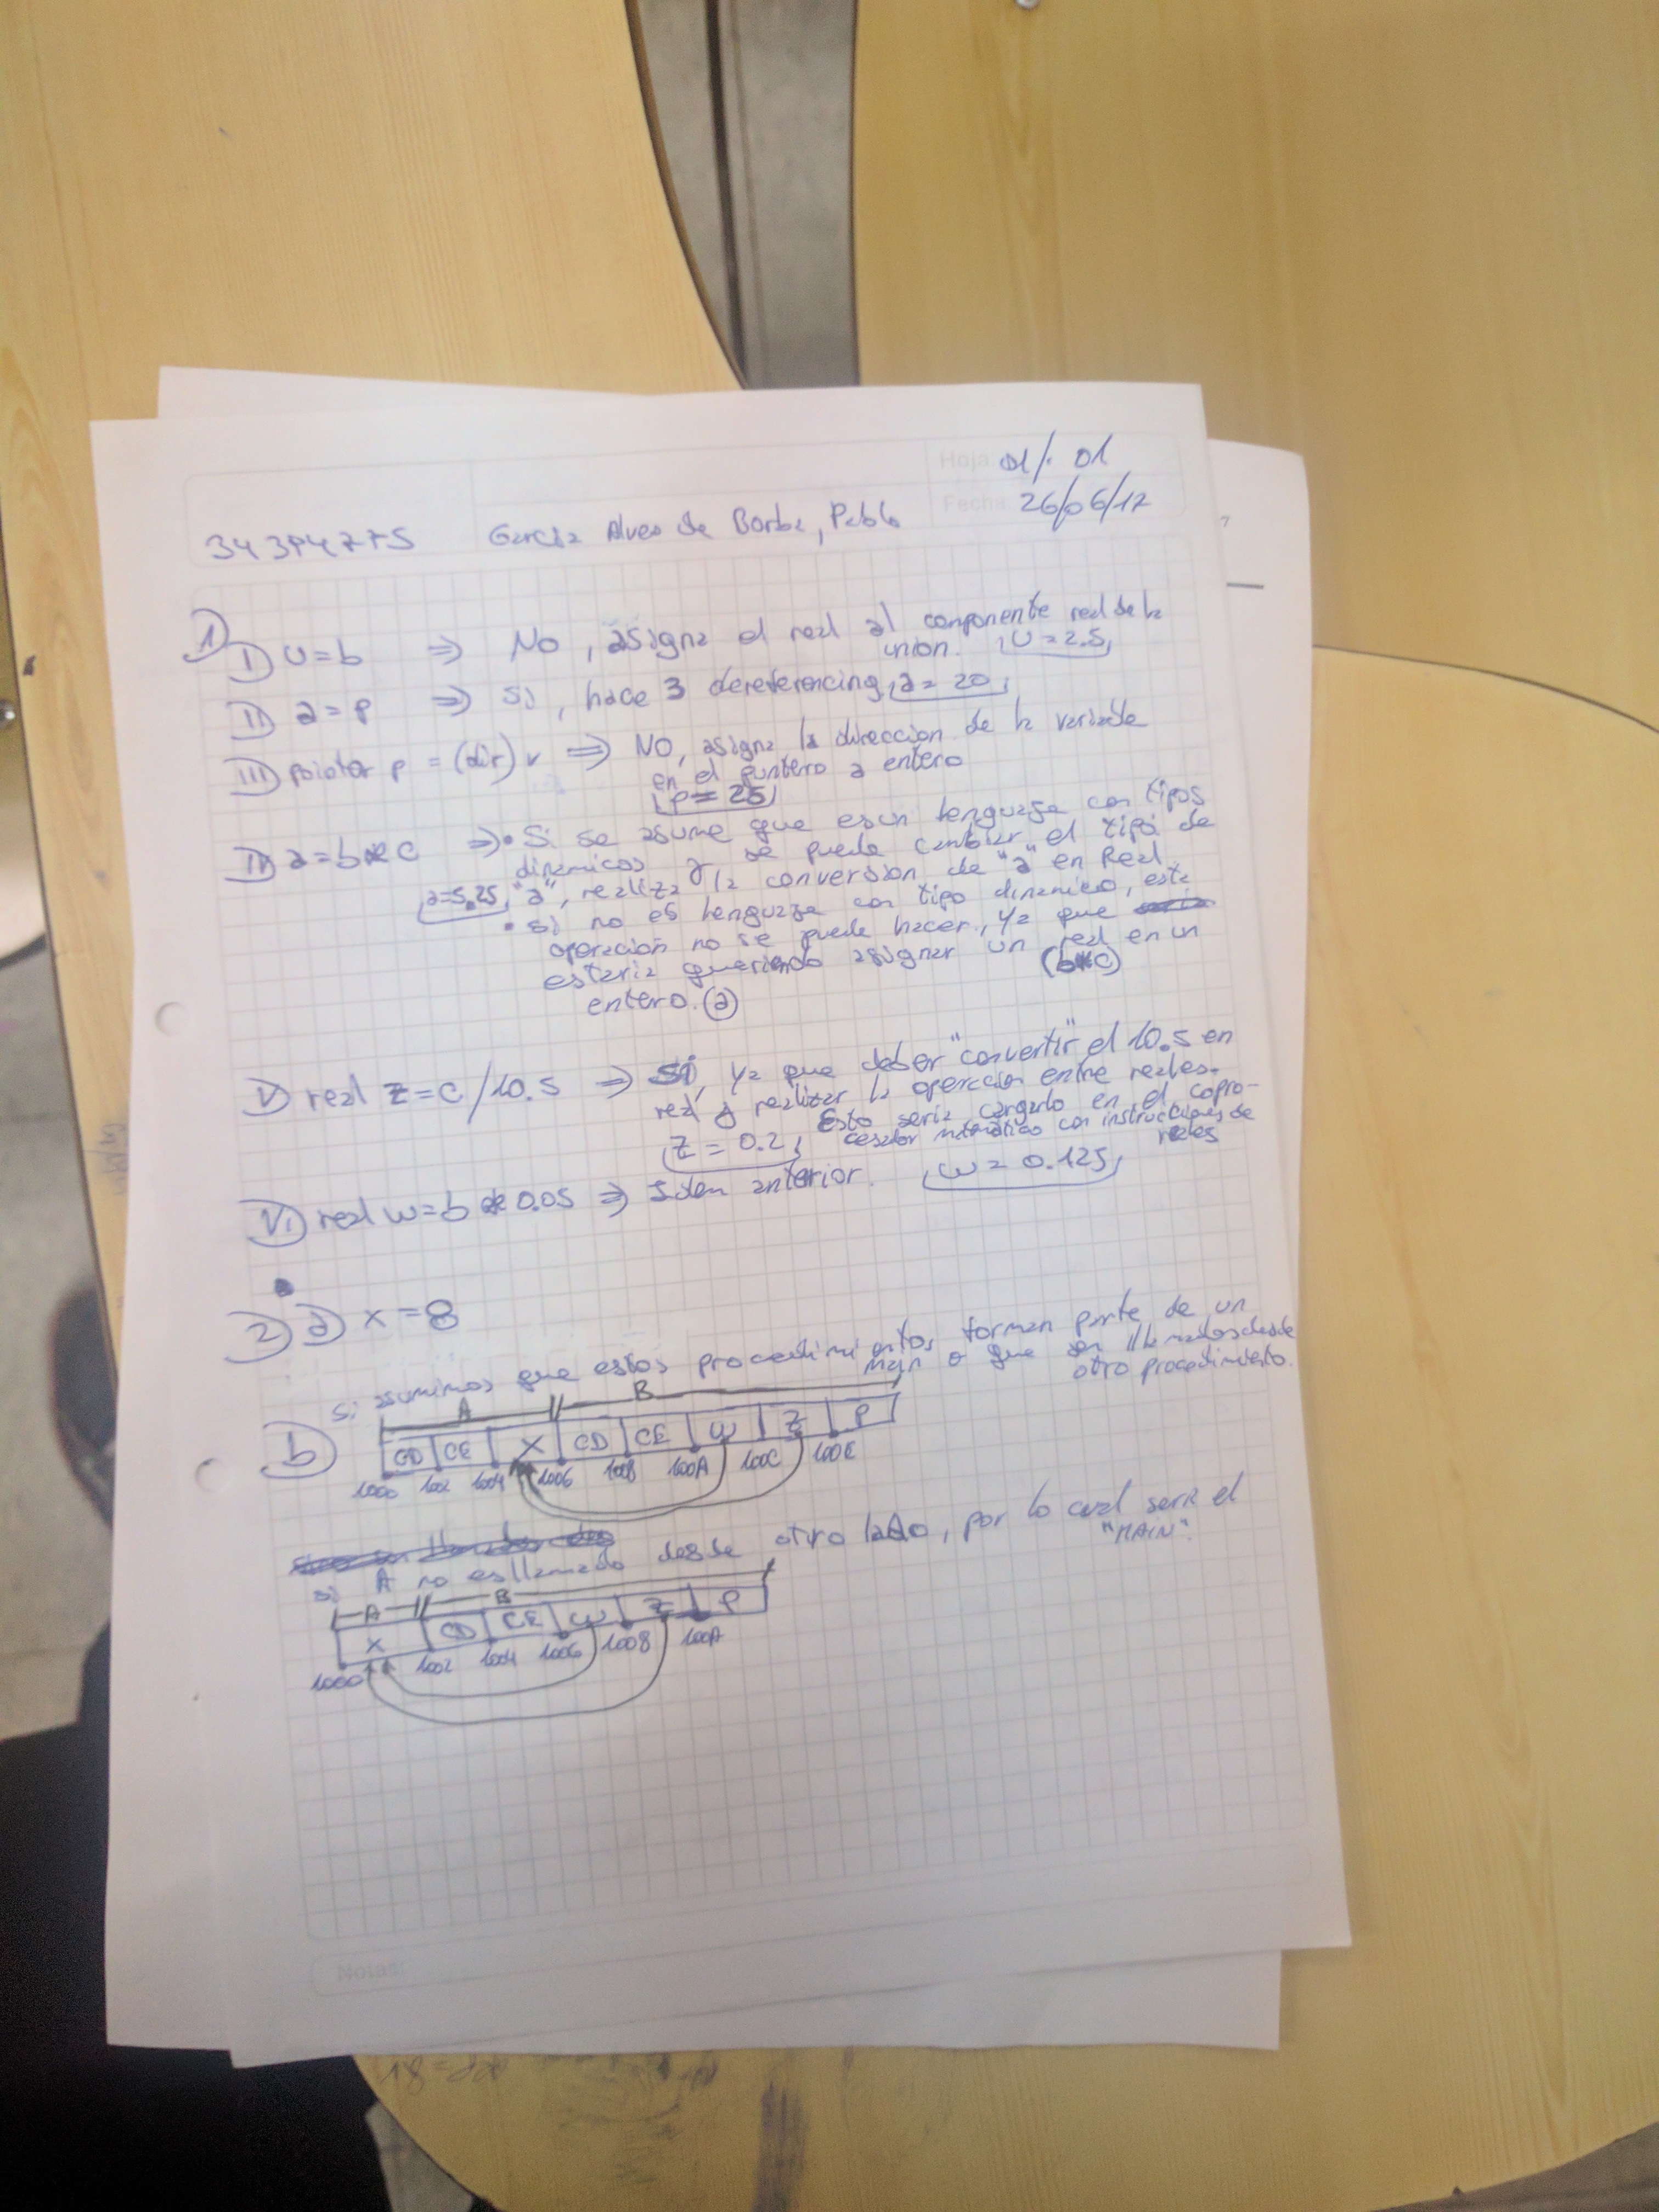 Hoja: 01/. 01
Fecha: 26/06/17
Garcia Alves de Borba, Pablo
1)
I) U=b ⇒ No, asigna el real al componente real de la
union. U=2.5
II) a=p ⇒ Si, hace 3 dereferencing, a= 20
III) pointer p = (dir) v ⇒ NO, asigna la direccion de la variable
en el puntero a entero
p= 25
IV) a=b*c ⇒ • Si se asume que es un lenguaje con tipos
dinamicos y se puede cambiar el tipo de
a=5.25 "a", realiza la conversion de "a" en Real.
• Si no es lenguaje con tipo dinamico, esta
operación no se puede hacer, ya que
estaria queriendo asignar un real en un
(b*c)
entero. (a)
V) real z=c/10.5 ⇒ Si, ya que deber "convertir" el 10.5 en
real y realizar la operacion entre reales.
Esto seria cargarlo en el copro-
z = 0.2 cesador matematico con instrucciones de
reales
VI) real w=b*0.05 ⇒ Idem anterior. w = 0.125
2) a) x=8
Si asumimos que estos procedimientos forman parte de un
main o que son llamados desde
otro procedimiento.
A B
b) CD CE X CD CE W Z P
1000 1002 1004 1006 1008 100A 100C 100E
si A no es llamado desde otro lado, por lo cual seria el
"MAIN".
A B
X CD CE W Z P
1000 1002 1004 1006 1008 100A
Notas: